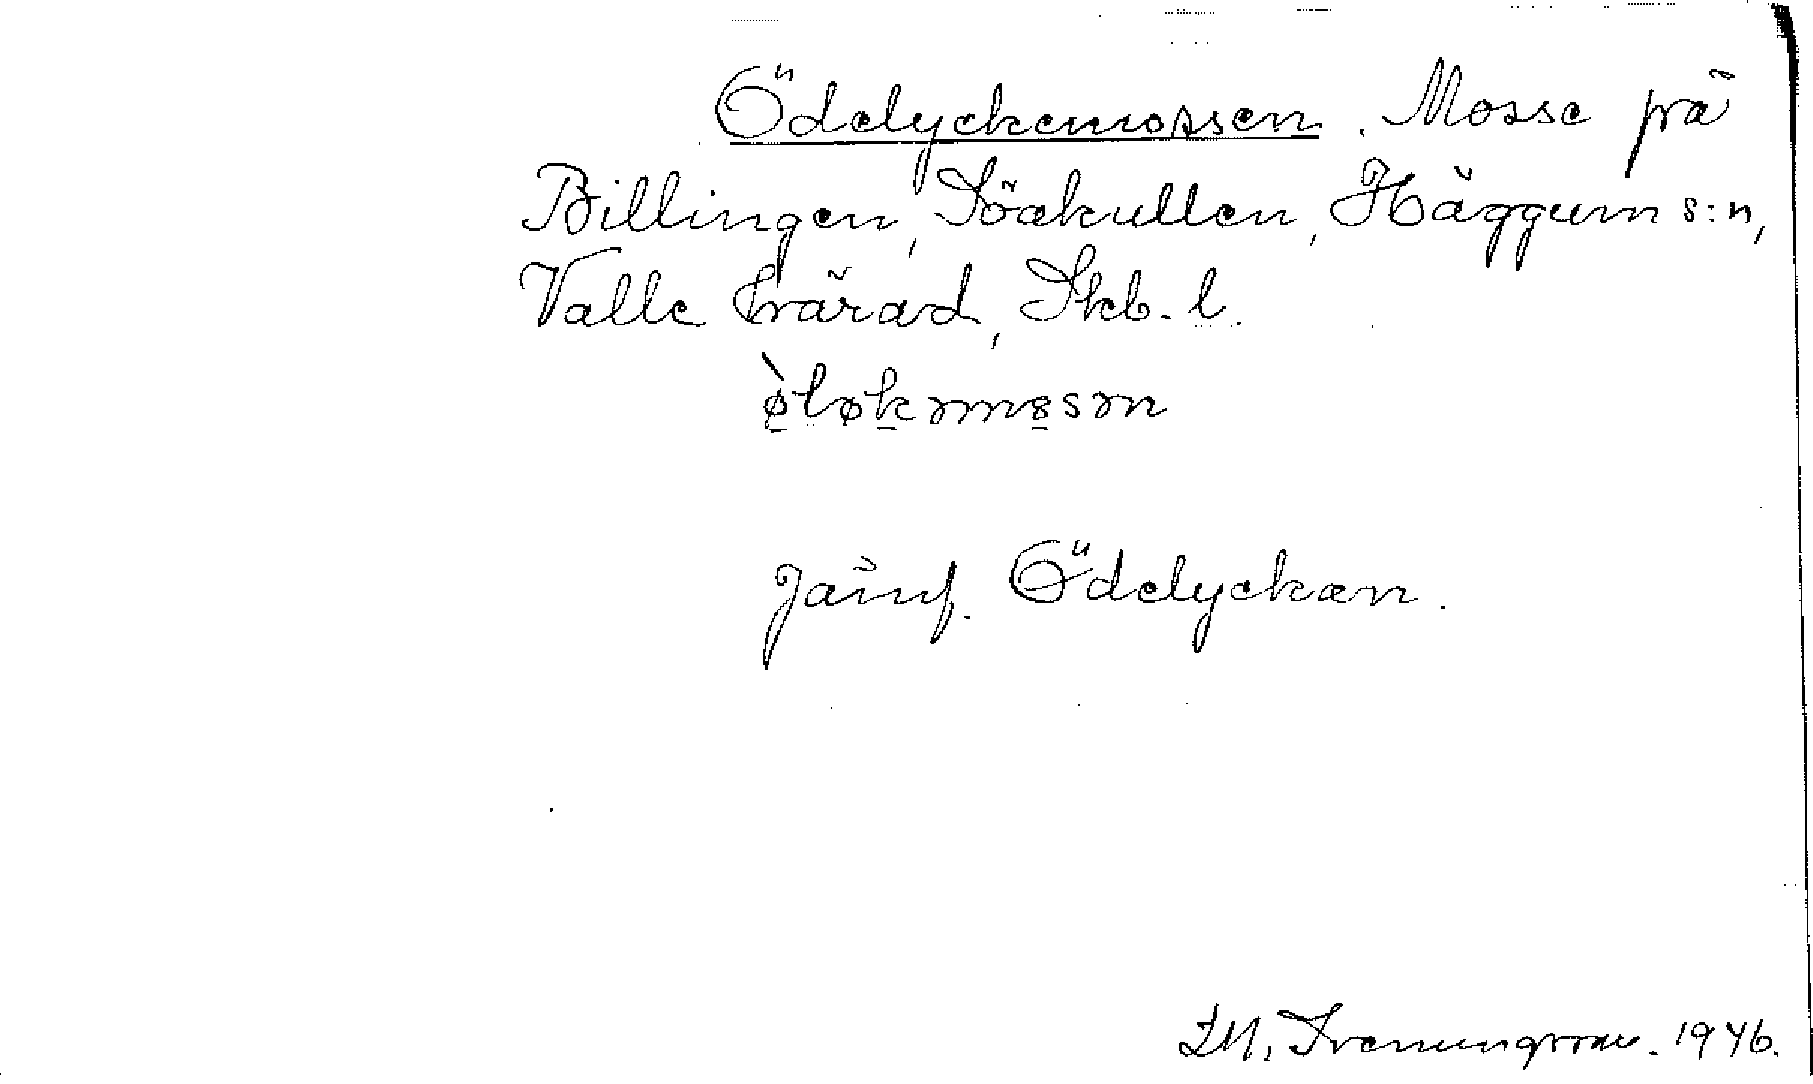 Ödelyckemossen. Mosse på
Billingen, Söakullen, Häggum s:n,
Valle härad, Skb. l.
Jämf. Ödelyckan.
Svenungsson. 1946.